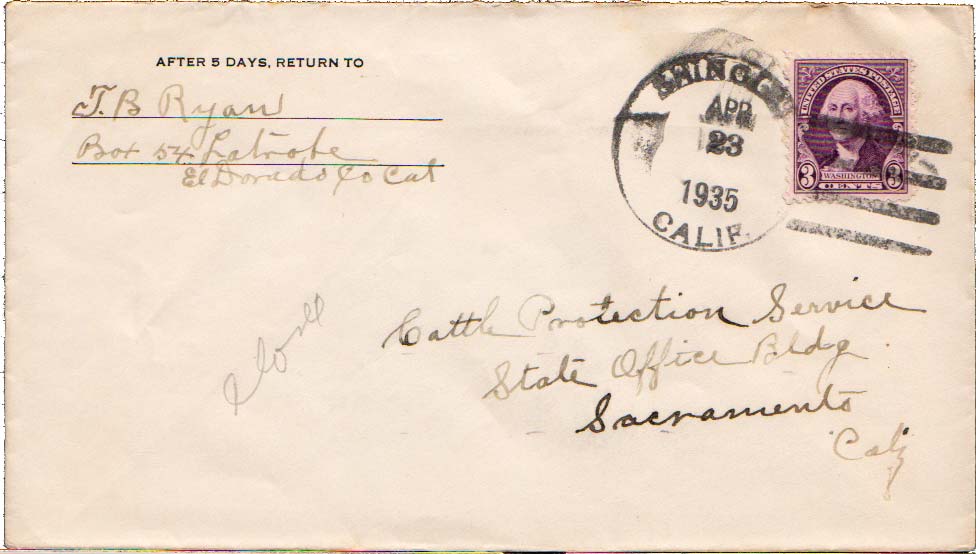 AFTER 5 DAYS, RETURN TO
T. B Ryan
Box 54 Latrobe
El Dorado Co Cal
APR
23
1935
CALIF.
UNITED STATES POSTAGE
3 WASHINGTON 3
CENTS
Cattle Protection Service
State Office Bldg.
Sacramento
Calif